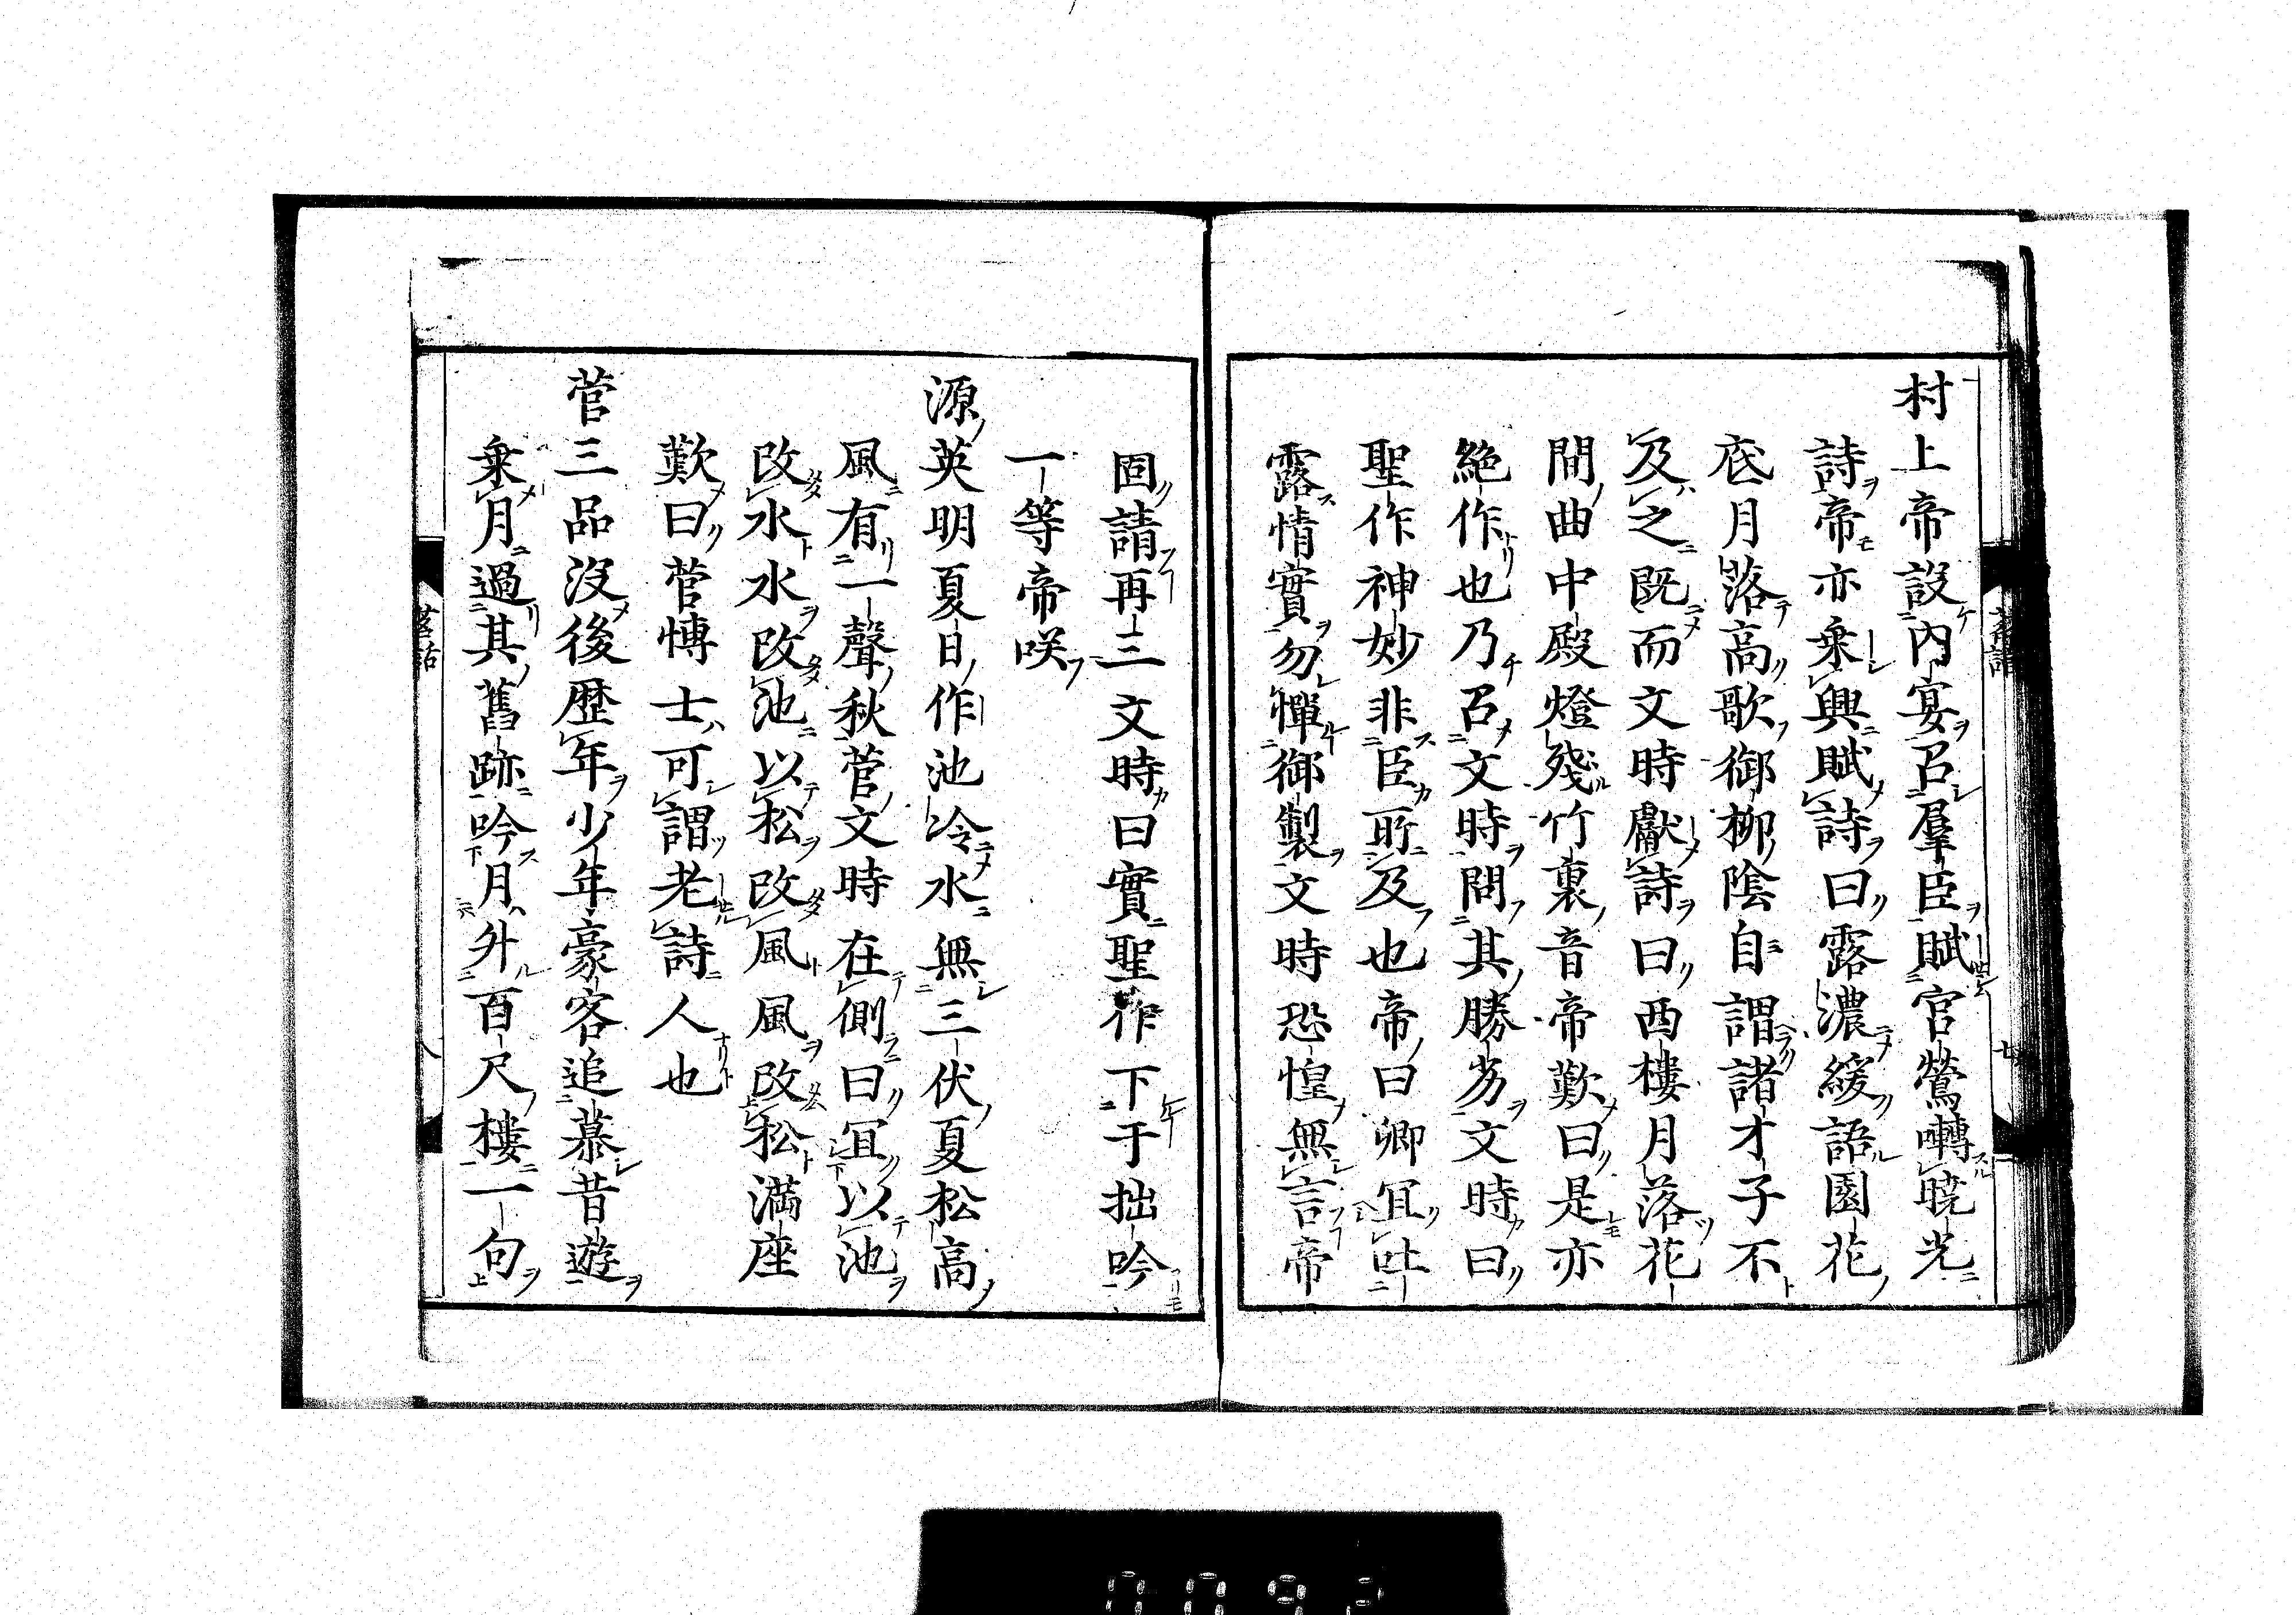 村上帝設內宴召羣臣賦宮鶯囀曉光
詩帝亦乘興賦詩曰露濃緩語園花
底月落高歌御柳陰自謂諸才子不
及之既而文時獻詩曰西樓月落花
間曲中殿燈殘竹裏音帝歎曰是亦
絕作也乃召文時問其勝劣文時曰
聖作神妙非臣所及也帝曰卿宜吐
露情實勿憚御製文時恐惶無言帝
固請再三文時曰實聖作下于拙吟
一等帝咲
源英明夏日作池冷水無三伏夏松高
風有一聲秋菅文時在側曰宜以池
改水水改池以松改風風改松滿座
歎曰菅博士可謂老詩人也
菅三品沒後歷年少年豪客追慕昔遊
乘月過其舊跡吟月外百尺樓一句
七
八